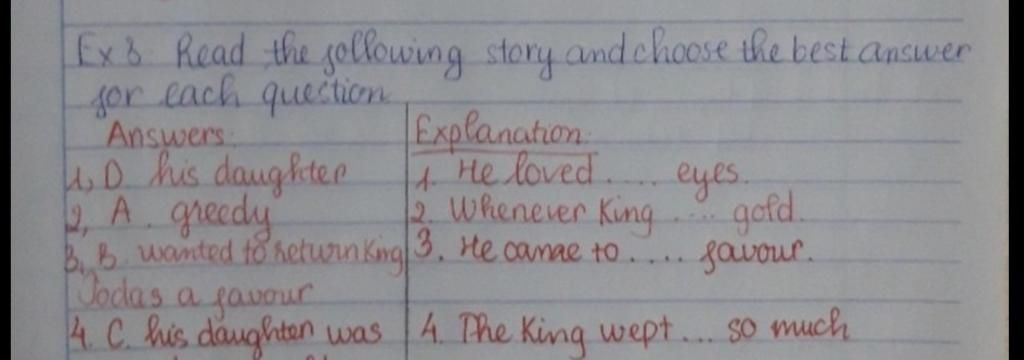 Ex 3. Read the following story and choose the best answer
for each question
Answers: Explanation:
1, D his daughter 1. He loved .... eyes.
2, A. greedy 2. Whenever King .... gold.
3, B. wanted to return King 3. He came to .... favour.
Jodas a favour
4. C. his daughter was 4. The King wept ... so much